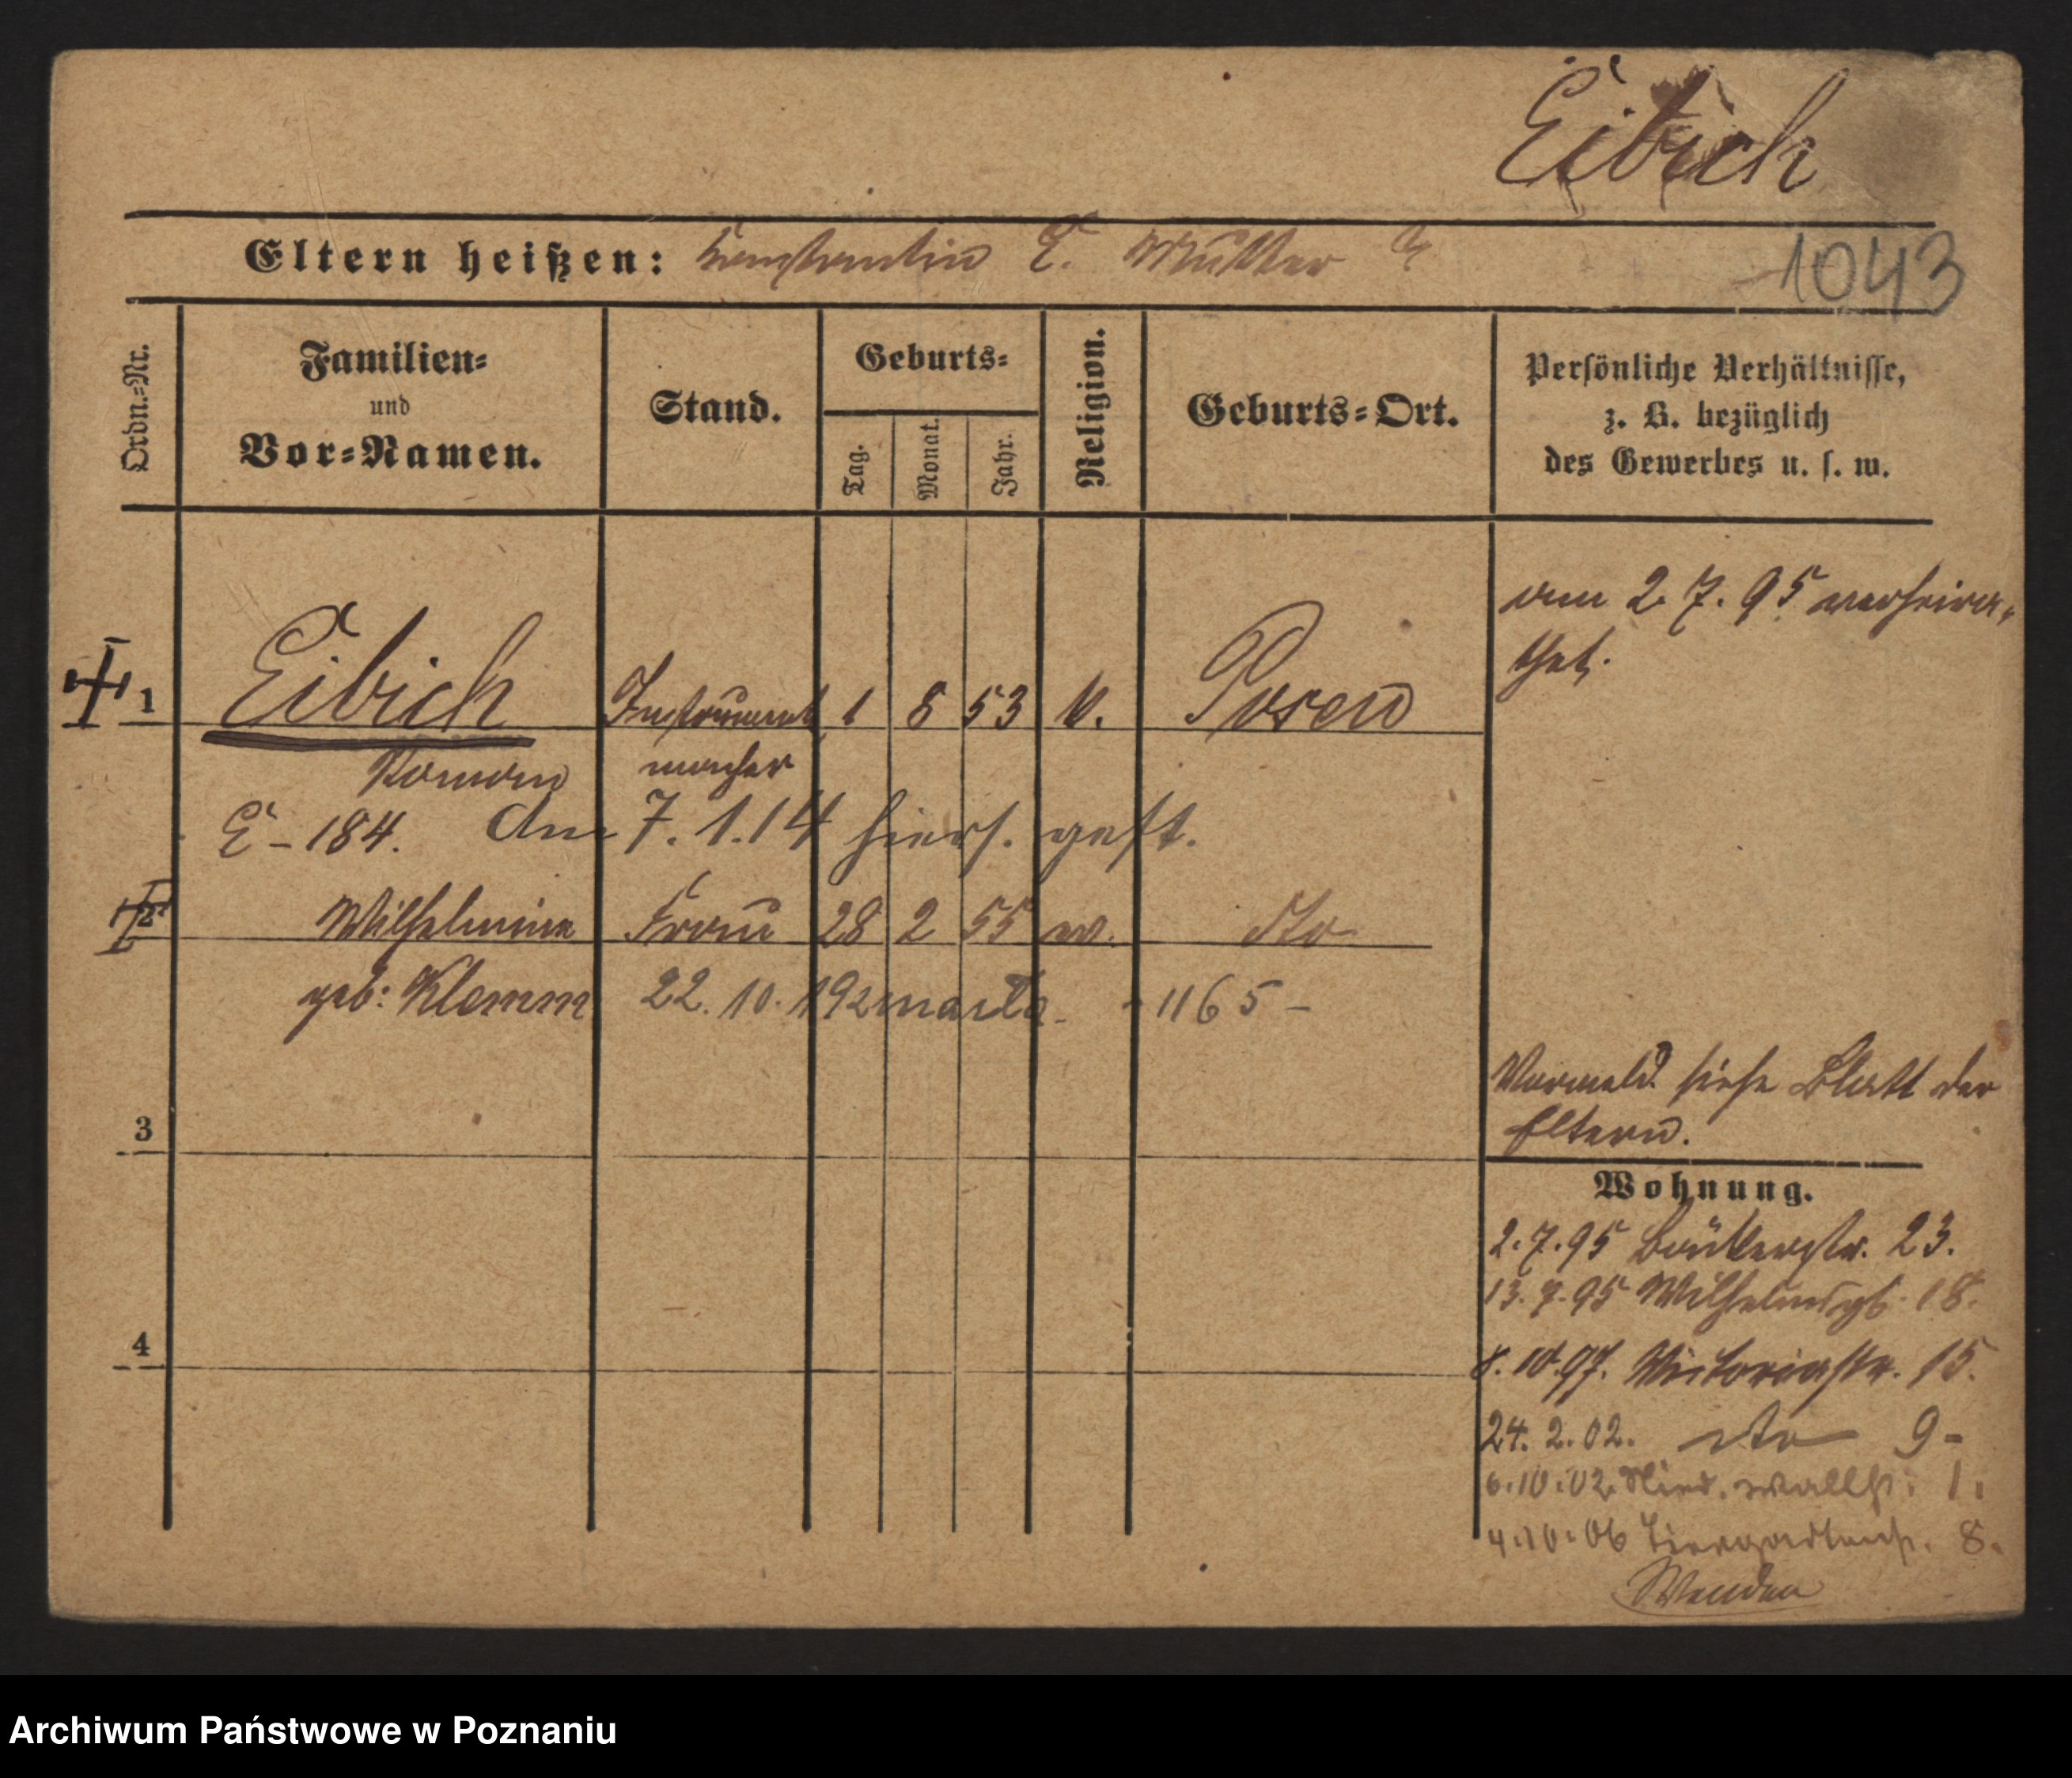 Eibich
Eltern heißen: Konstantin E. Mutter ?
1043
Ordn.=Nr.
Familien=
und
Vor=Namen.
Stand.
Geburts=
Tag.
Monat.
Jahr.
Religion.
Geburts=Ort.
Persönliche Verhältnisse,
z. B. bezüglich
des Gewerbes u. s. w.
am 2.7.95 verheira=
thet.
1 Eibich Instrument 1 8 53 k. Posen
Roman macher
E - 184. Am 7.1.14 hiers. gest.
2 Wilhelmine Frau 28 2 55 ev. dto
geb: Klemm 22. 10. - 1165 -
Vormeld. siehe Blatt der
Eltern.
3
Wohnung.
2.7.95 Bäckerstr. 23.
13.7.95 18.
4
8.10.97. Victoriastr. 15.
24.2.02. dto 9-
6.10.02. Nied. Wallstr. 1.
4.10.06 Tiergartenstr. 8.
Wenden
Archiwum Państwowe w Poznaniu